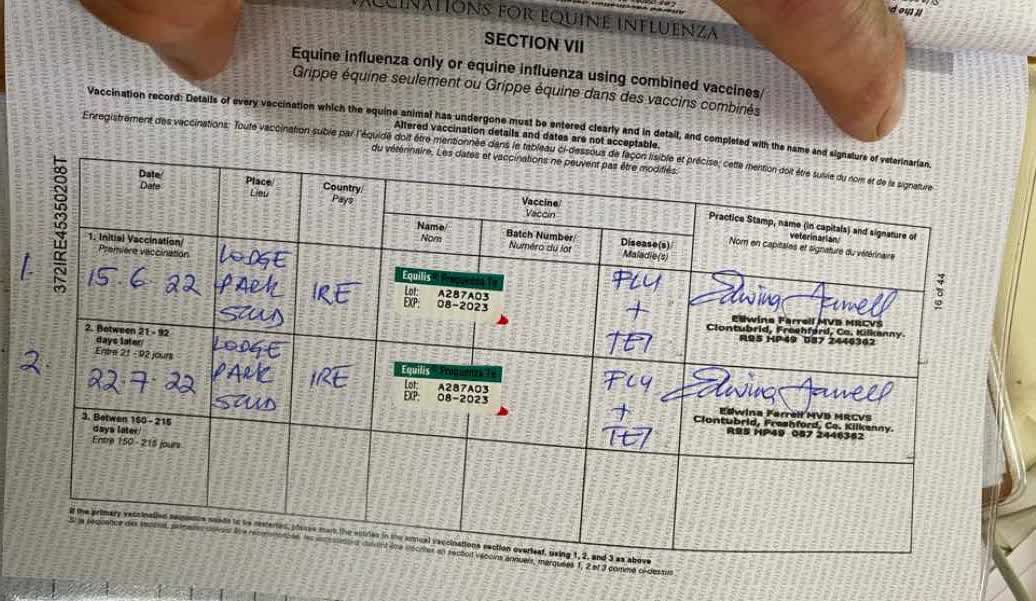 VACCINATIONS FOR EQUINE INFLUENZA
SECTION VII
Equine influenza only or equine influenza using combined vaccines/
Grippe équine seulement ou Grippe équine dans des vaccins combinés
Vaccination record: Details of every vaccination which the equine animal has undergone must be entered clearly and in detail, and completed with the name and signature of veterinarian.
Altered vaccination details and dates are not acceptable.
Enregistrément des vaccinations: Toute vaccination subie par l'équidé doit être mentionnée dans le tableau ci-dessous de façon lisible et précise, cette mention doit être suivie du nom et de la signature
du vétérinaire. Les dates et vaccinations ne peuvent pas être modifiés.
372IRE45350208T
Date/
Date
Place/
Lieu
Country/
Pays
Vaccine/
Vaccin
Name/
Nom
Batch Number/
Numéro du lot
Disease(s)/
Maladie(s)
Practice Stamp, name (in capitals) and signature of
veterinarian/
Nom en capitales et signature du vétérinaire
16 of 44
1.
1. Initial Vaccination/
Première vaccination
15.6.22
LODGE
PARK
STUD
IRE
Equilis Prequenza Te
Lot: A287A03
EXP: 08-2023
FLU
+
TET
Edwina Farrell
Edwina Farrell MVB MRCVS
Clontubrid, Freshford, Co. Kilkenny.
R95 HP49 087 2446362
2.
2. Between 21 - 92
days later/
Entre 21 - 92 jours
22.7.22
LODGE
PARK
STUD
IRE
Equilis Prequenza Te
Lot: A287A03
EXP: 08-2023
FLU
+
TET
Edwina Farrell
Edwina Farrell MVB MRCVS
Clontubrid, Freshford, Co. Kilkenny.
R95 HP49 087 2446362
3. Betwen 150 - 215
days later/
Entre 150 - 215 jours
If the primary vaccination sequence needs to be restarted, please mark the entries in the annual vaccinations section overleaf, using 1, 2, and 3 as above
être inscrites en section vaccins annuels, marquées 1, 2 et 3 comme ci-dessus